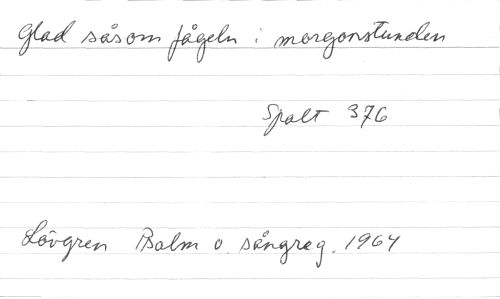 Glad såsom fågeln i morgonstunden
Spalt 376
Lövgren Psalm o. sångreg. 1964